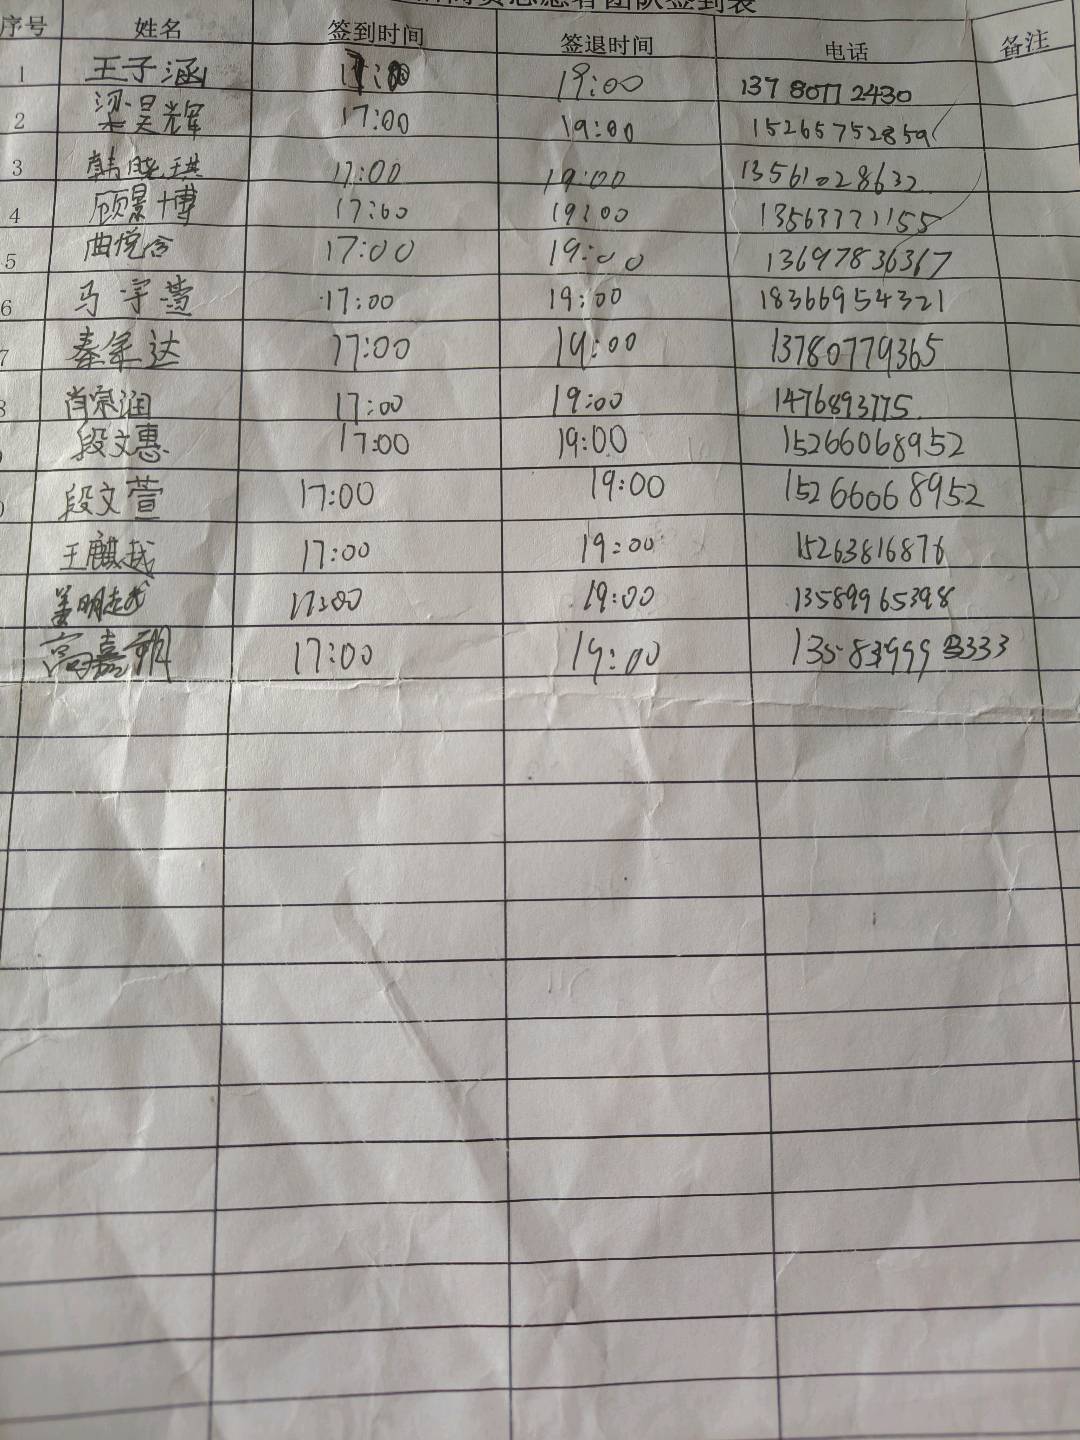 志愿者团队签到表
序号 姓名 签到时间 签退时间 电话 备注
1 王子涵 17:00 19:00 13780772430
2 梁昊辉 17:00 19:00 15265752859
3 韩晓琪 17:00 19:00 13561028632
4 顾景博 17:00 19:00 13563771155
5 曲悦含 17:00 19:00 13697836367
6 马宇萱 17:00 19:00 18366954321
7 秦年达 17:00 19:00 13780779365
8 肖宗润 17:00 19:00 1476893775
段文惠 17:00 19:00 15266068952
段文萱 17:00 19:00 15266068952
王麒越 17:00 19:00 15263816876
姜明越 17:00 19:00 13589965398
高嘉 17:00 19:00